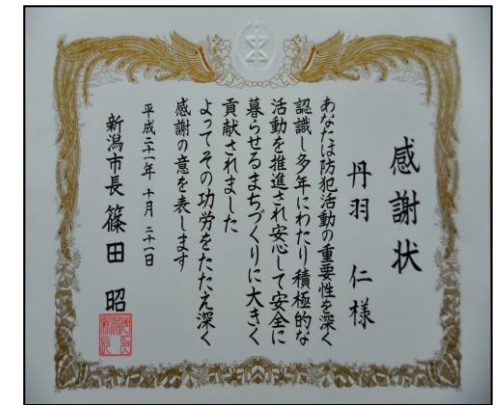 感謝状
丹羽 仁様
あなたは防犯活動の重要性を深く
認識し多年にわたり積極的な
活動を推進され安心して安全に
暮らせるまちづくりに大きく
貢献されました
よってその功労をたたえ深く
感謝の意を表します
平成二十一年十月二十一日
新潟市長 篠田 昭